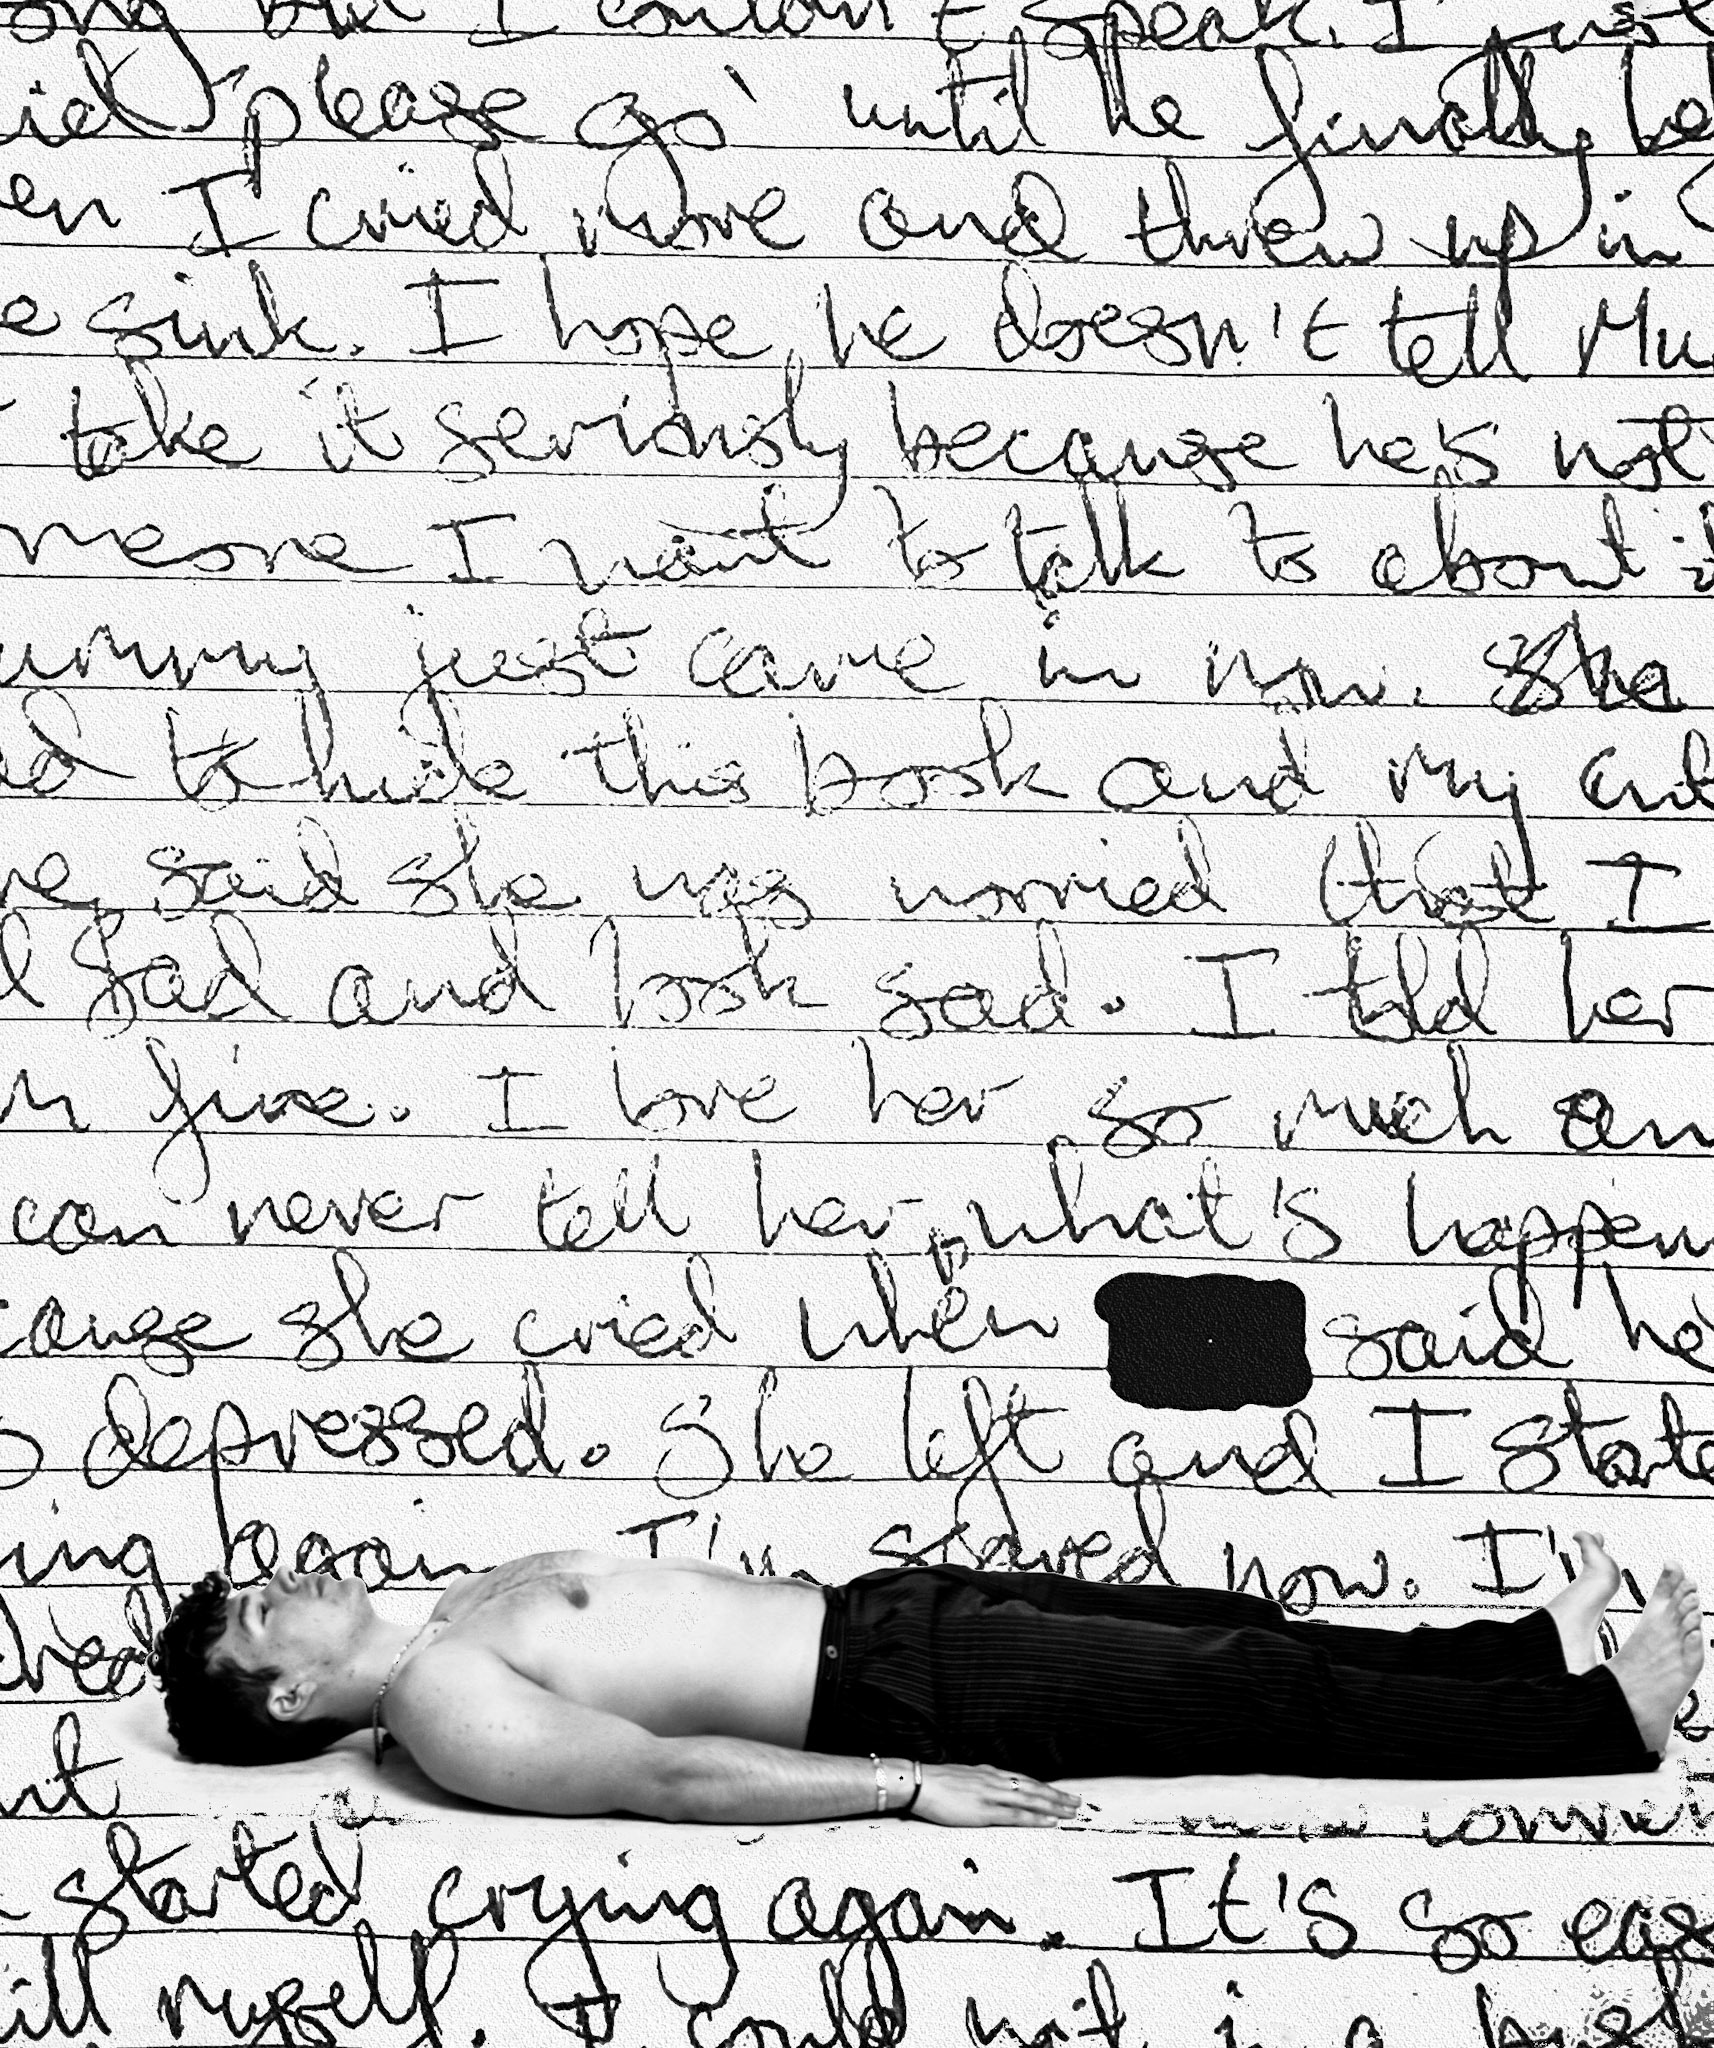 ong but I couldn't speak. I just
id 'please go' until he finally le
en I cried more and threw up in
e sink. I hope he doesn't tell Mu
take it seriously because he's not
meone I want to talk to about it
ummy just came in now. She
ad to hide this book and my cut
ve, said she was worried that I
d sad and look sad. I told her
m fine. I love her so much an
can never tell her what's happen
cause she cried when said he
s depressed. She left and I starte
ing again I'm scared now. I'm
nt
started crying again. It's so eas
ill myself. I could